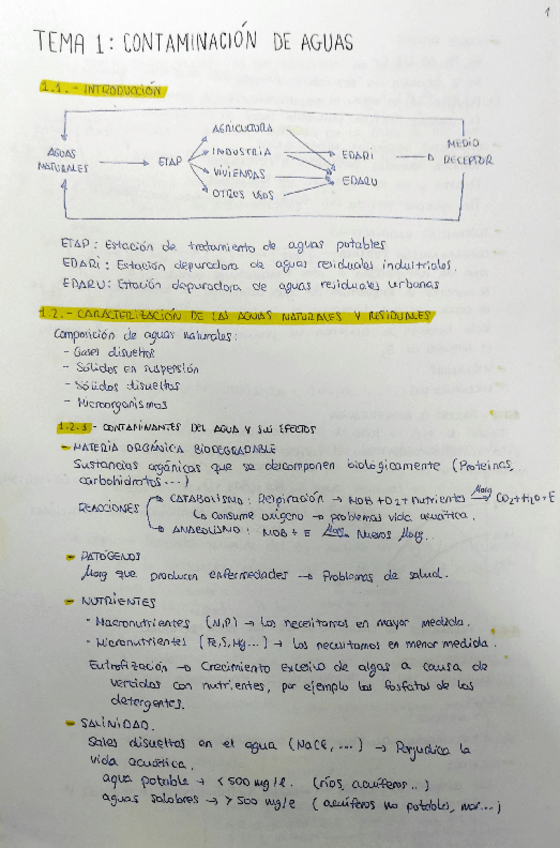 1
TEMA 1: CONTAMINACIÓN DE AGUAS
1.1.- INTRODUCCIÓN
AGUAS NATURALES → ETAP → AGRICULTURA
INDUSTRIA
VIVIENDAS
OTROS USOS
EDARI
EDARU
→ MEDIO RECEPTOR
ETAP: Estación de tratamiento de aguas potables
EDARI: Estación depuradora de aguas residuales industriales.
EDARU: Estación depuradora de aguas residuales urbanas
1.2.- CARACTERIZACIÓN DE LAS AGUAS NATURALES Y RESIDUALES
Composición de aguas naturales:
- Gases disueltos
- Sólidos en suspensión
- Sólidos disueltos
- Microorganismos
1.2.1- CONTAMINANTES DEL AGUA Y SUS EFECTOS
- MATERIA ORGÁNICA BIODEGRADABLE
Sustancias orgánicas que se descomponen biológicamente (Proteínas,
carbohidratos...)
REACCIONES
CATABOLISMO: Respiración → MOB + O2 + nutrientes →Morg CO2 + H2O + E
↳ Consume oxígeno → problemas vida acuática.
ANABOLISMO: MOB + E →Morg Nuevos Morg.
- PATÓGENOS
Morg que producen enfermedades → Problemas de salud.
- NUTRIENTES
· Macronutrientes (N,P) → Los necesitamos en mayor medida.
· Micronutrientes (Fe,S,Mg...) → Los necesitamos en menor medida.
Eutrofización → Crecimiento excesivo de algas a causa de
vertidos con nutrientes, por ejemplo los fosfatos de los
detergentes.
- SALINIDAD.
Sales disueltas en el agua (NaCl, ...) → Perjudica la
vida acuática.
agua potable → < 500 mg/l. (ríos, acuíferos..)
aguas salobres → > 500 mg/l (acuíferos no potables, mar...)